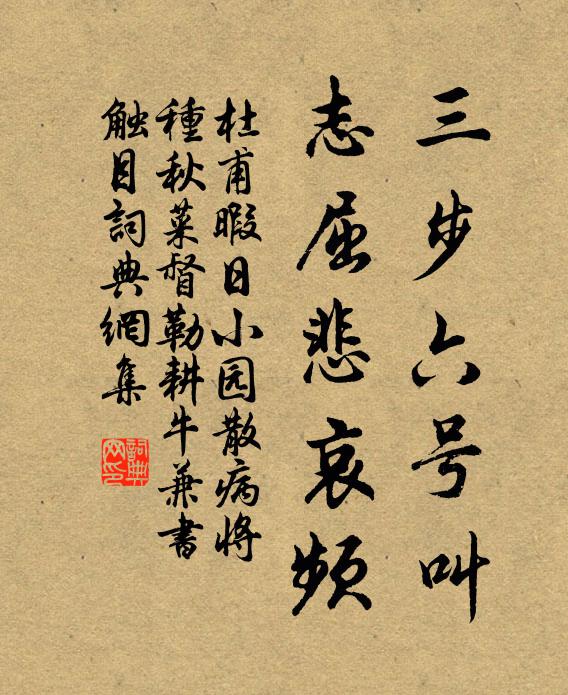 三步六号叫
志屈悲哀频
杜甫暇日小园散病将
種秋菜督勒耕牛兼書
触目詞典網集
詞典網印